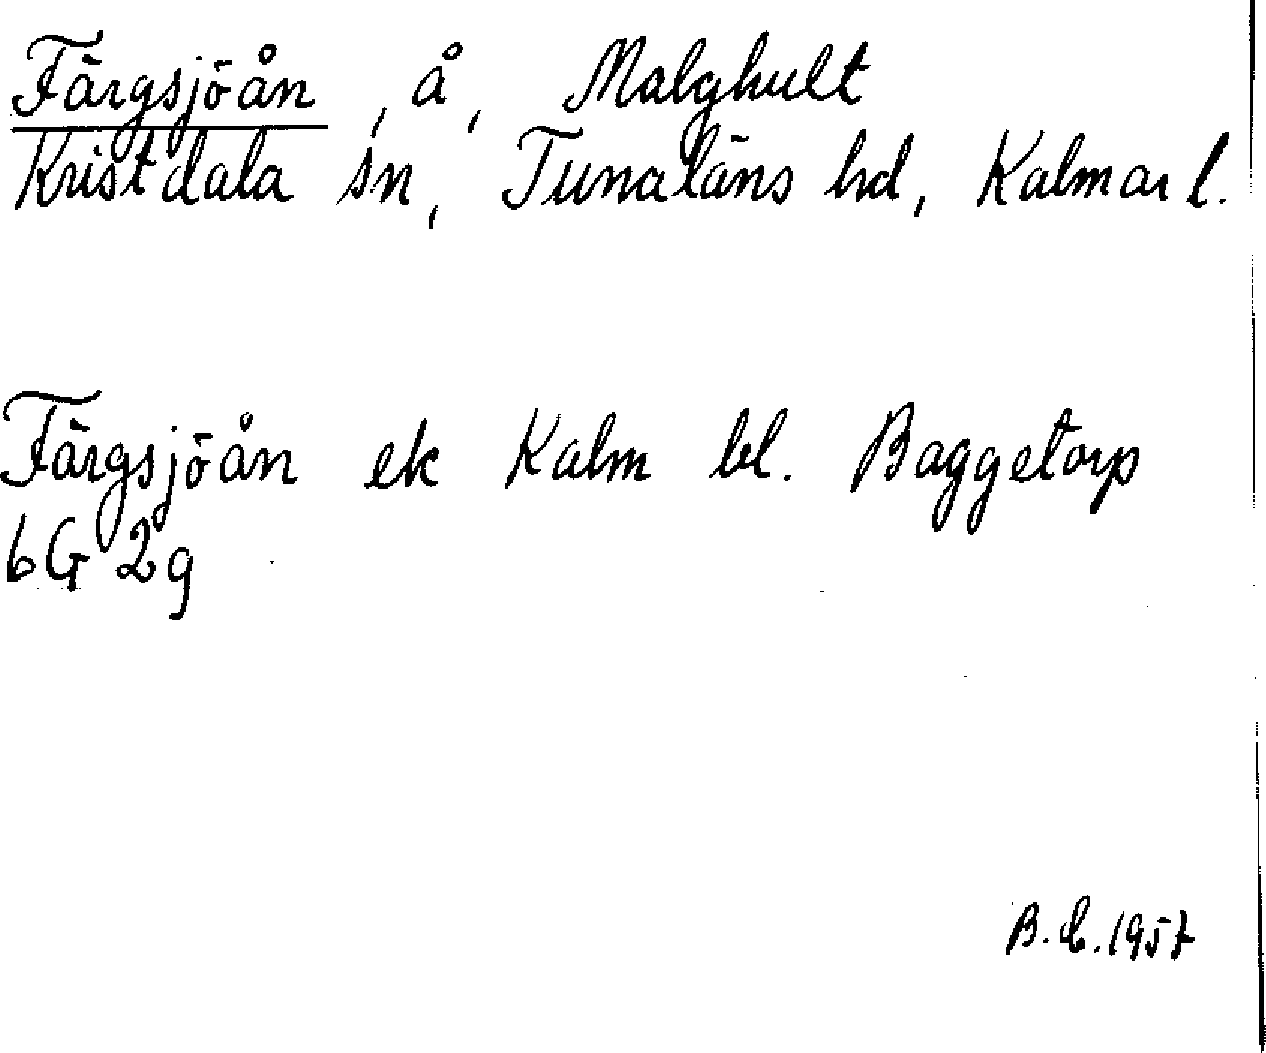 Färgsjöån, å, Malghult
Kristdala sn, Tunaläns hd, Kalmar l.
Färgsjöån ek Kalm bl. Baggetorp
6G 2g
B. E. 1957